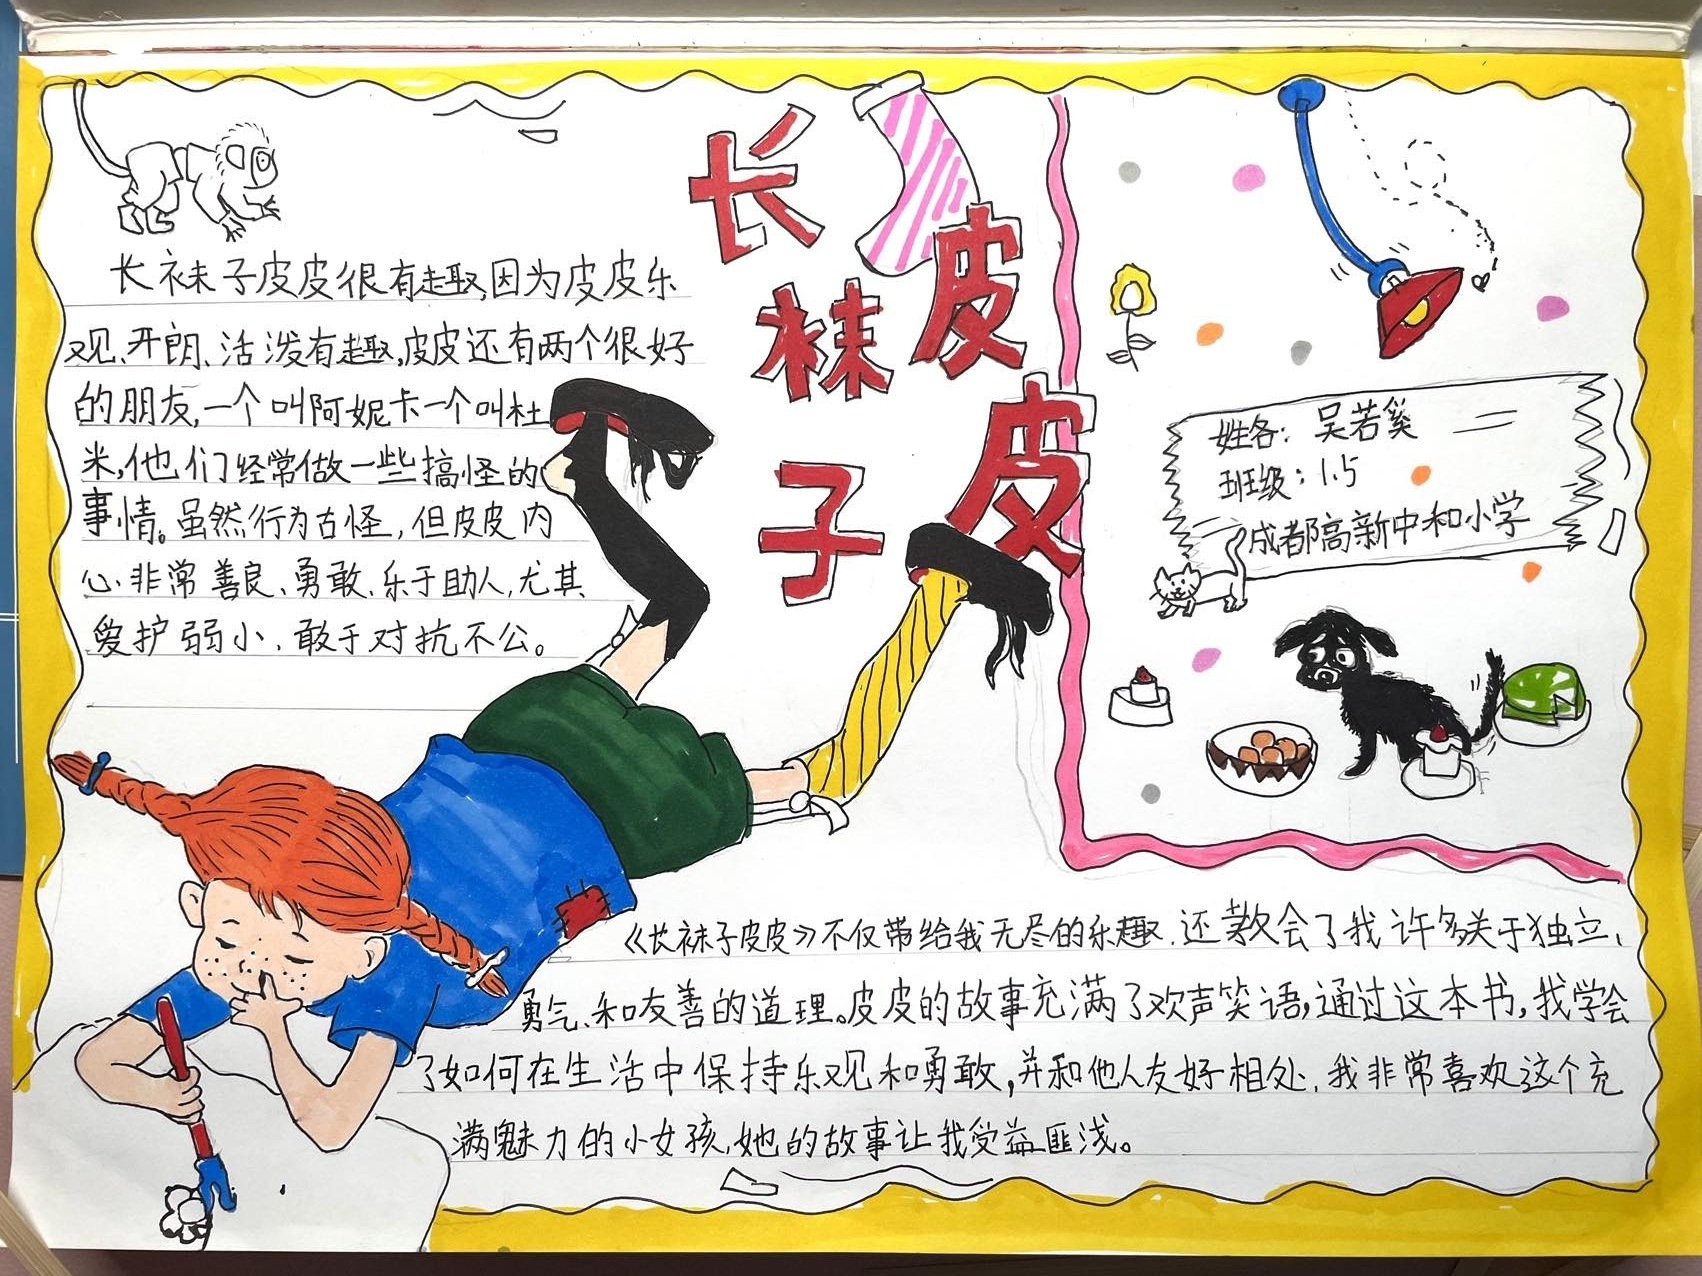 长袜子皮皮
长袜子皮皮很有趣,因为皮皮乐
观、开朗、活泼有趣,皮皮还有两个很好
的朋友,一个叫阿妮卡一个叫杜
米,他们经常做一些搞怪的
事情。虽然行为古怪,但皮皮内
心非常善良、勇敢、乐于助人,尤其
爱护弱小、敢于对抗不公。
姓名:吴若奚
班级:1.5
成都高新中和小学
《长袜子皮皮》不仅带给我无尽的乐趣,还教会了我许多关于独立、
勇气、和友善的道理。皮皮的故事充满了欢声笑语,通过这本书,我学会
了如何在生活中保持乐观和勇敢,并和他人友好相处,我非常喜欢这个充
满魅力的小女孩,她的故事让我受益匪浅。